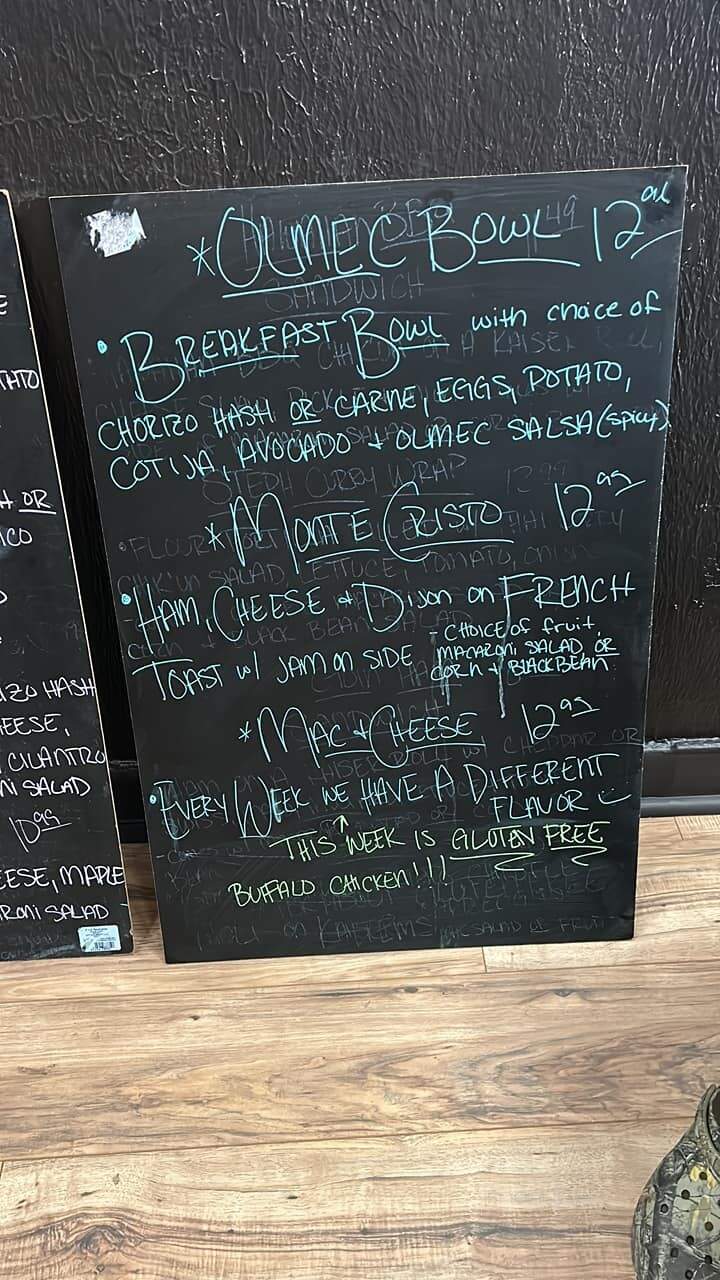 *OLMEC BOWL 12 99
• BREAKFAST BOWL with choice of
CHORIZO HASH OR CARNE, EGGS, POTATO,
COTIJA, AVOCADO + OLMEC SALSA (spicy)
*MONTE CRISTO 12 99
• HAM, CHEESE + DIJON on FRENCH
TOAST w/ JAM ON SIDE
CHOICE of fruit,
MACARONI SALAD OR
CORN + BLACK BEAN
*MAC + CHEESE 12 99
• EVERY WEEK WE HAVE A DIFFERENT
FLAVOR
THIS WEEK IS GLUTEN FREE
BUFFALO CHICKEN!!!
TATO
OR
ICO
ZO HASH
EESE,
CILANTRO
NI SALAD
10 99
EESE, MAPLE
RONI SALAD